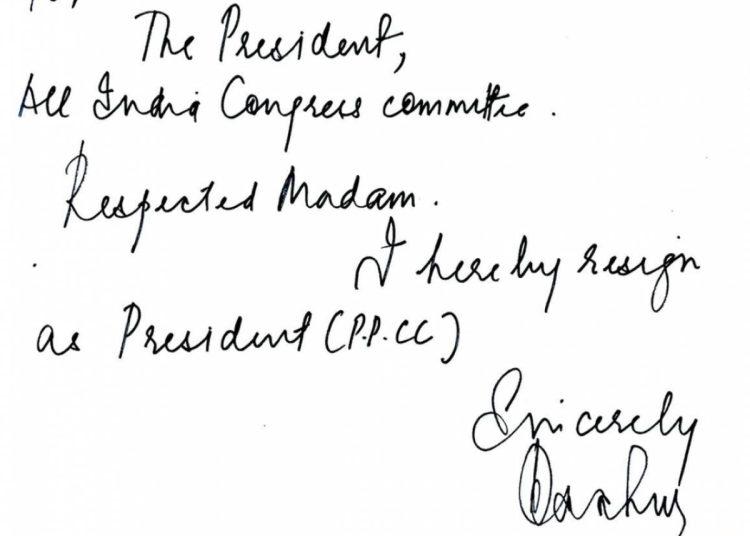 The President,
All India Congress committee.
Respected Madam.
I hereby resign
as President (P.P.CC)
Sincerely